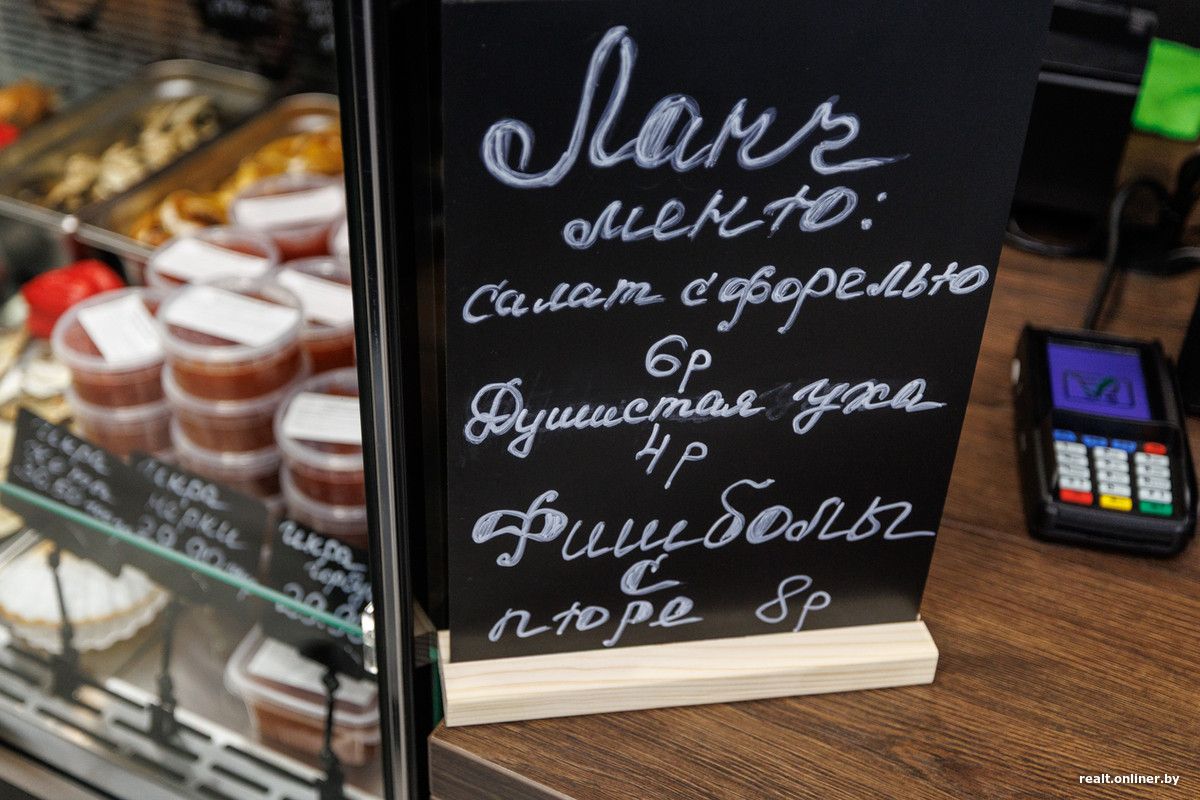 Ланч
меню:
салат с форелью
6р
Душистая уха
4р
Фишболы
с
пюре 8р
икра
кета
икра
нерки
29.90
икра
29.90
realt.onliner.by